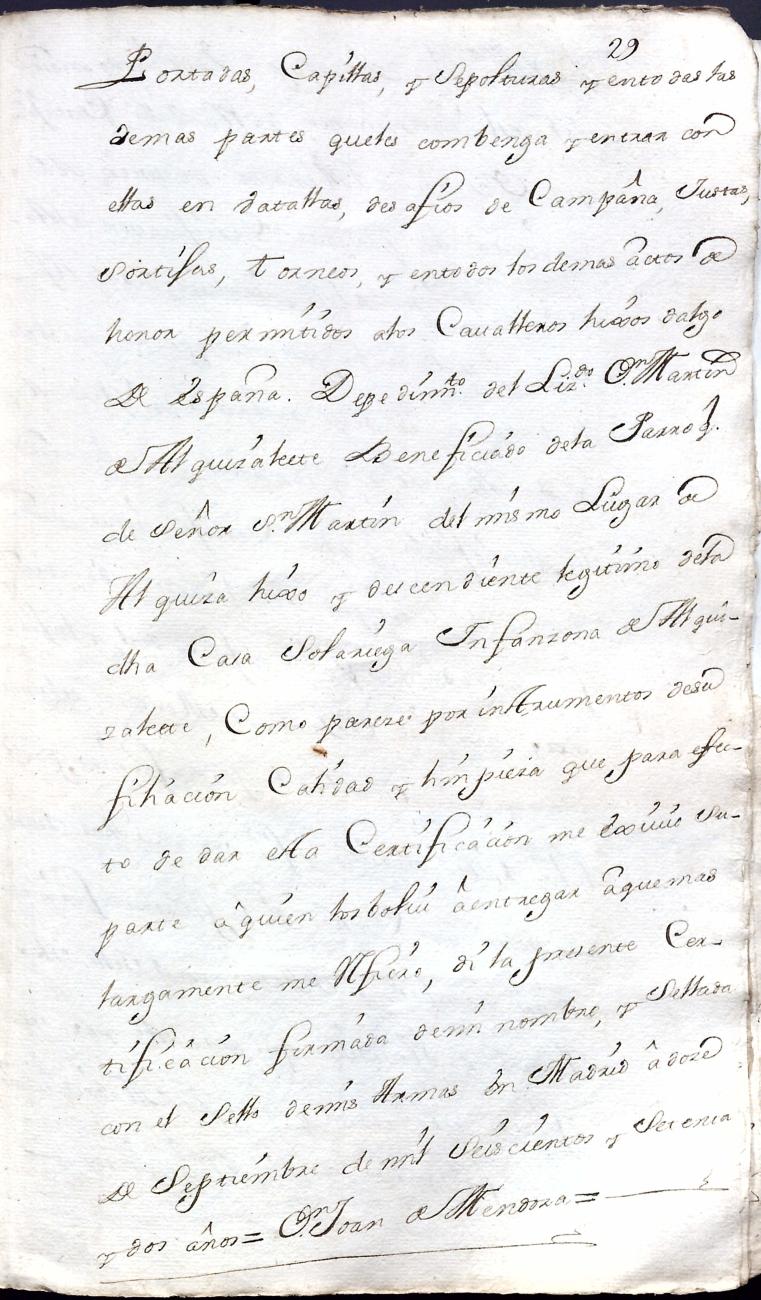 29
Portadas, Capillas, y Sepolturas y entodas las
demas partes queles combenga y entrar con
ellas en vatallas, desafios de Campâna, Justas,
Sortisas, Torneos, y entodos los demas actos de
honor permitidos alos Cavalleros hixos dalgo
De España. Depedimto. del Lizdo. Dn. Martin
de Alquizalete Beneficiado dela Parroq.
de Señor Sn. Martin del mismo Lugar de
Alquiza hixo y decendiente legitimo dela
dha Casa Solariega Infanzona de Alqui-
zalete, Como pareze por instrumentos desu
filiacion Calidad y limpieza que para efec-
to de dar esta Certificacion me exivio su
parte â quien los bolvi â entregar aquemas
largamente me Refiero, di la presente Cer-
tificâcion firmada demi nombre, y Sellada
con el Sello demis Armas en Madrid â doze
De Septiembre de mil Seiscientos y Setenta
y dos años= Dn. Joan de Mendoza=